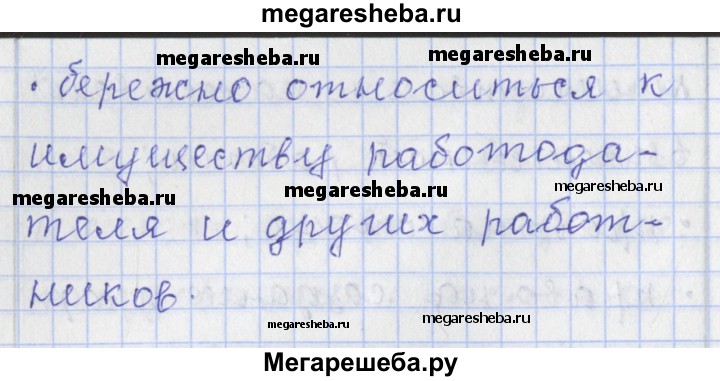 megaresheba.ru
megaresheba.ru megaresheba.ru
• бережно относиться к
имуществу работода-
megaresheba.ru megaresheba.ru megaresheba.ru
теля и других работ-
ников.
megaresheba.ru megaresheba.ru
Мегарешеба.ру